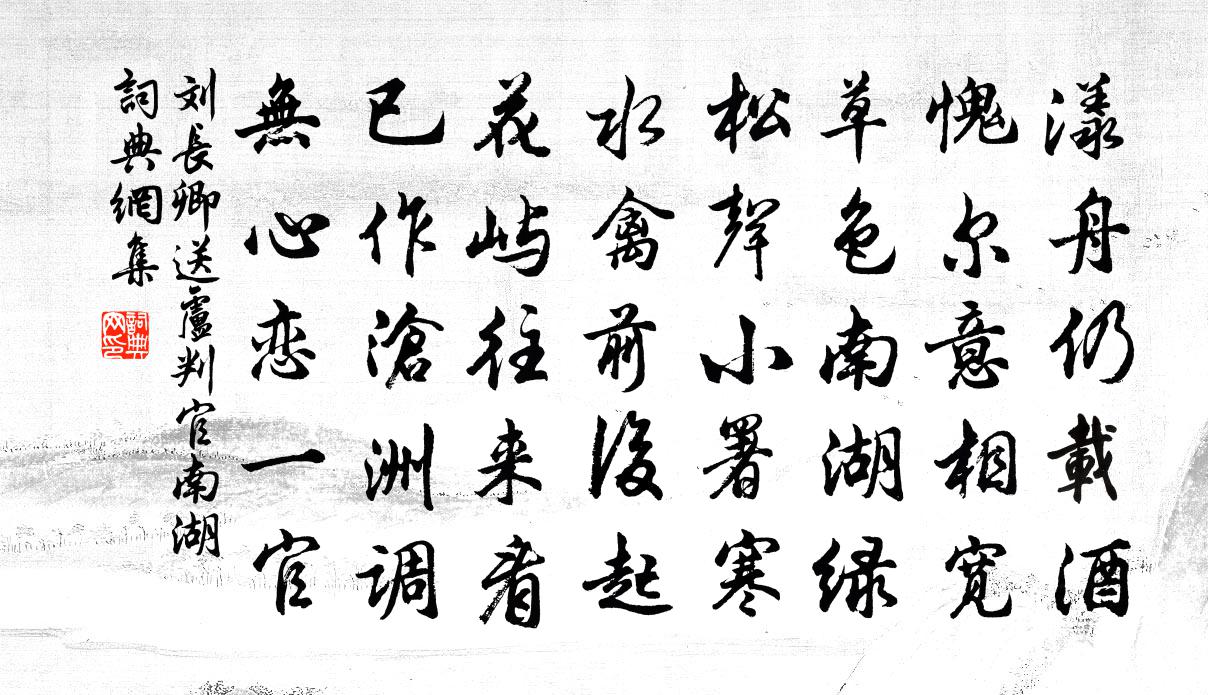 漾舟仍載酒
愧尔意相宽
草色南湖绿
松聲小署寒
水禽前後起
花屿往来看
已作滄洲调
無心恋一官
刘長卿送盧判官南湖
詞典網集
詞典网印